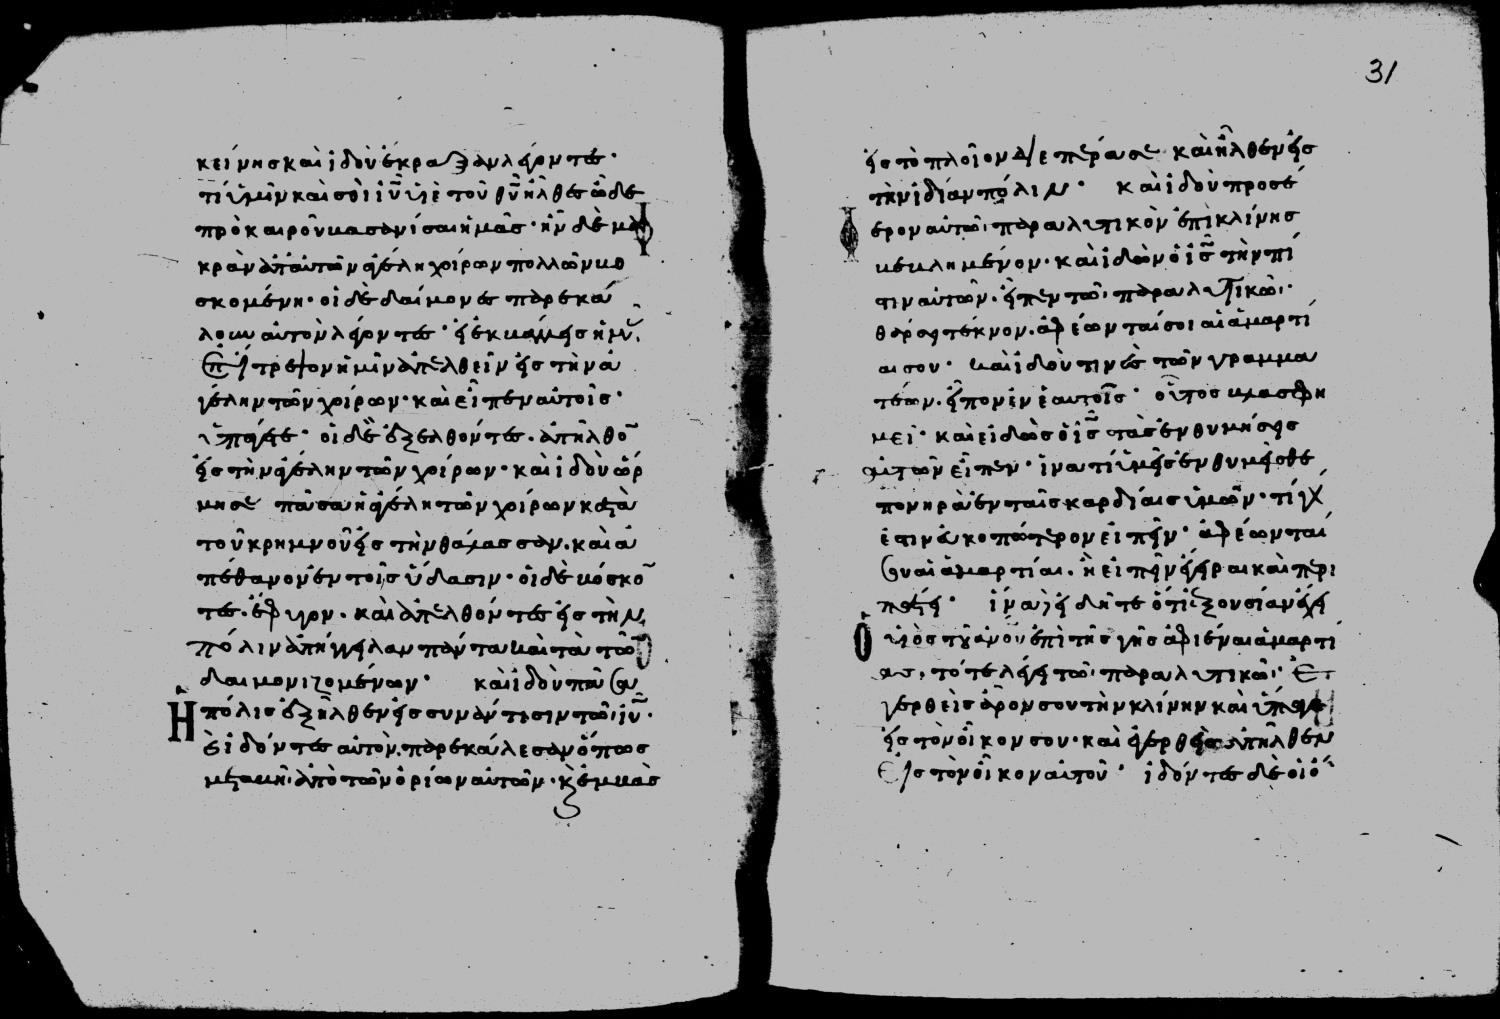 κείνης καὶ ἰδοὺ ἔκραξαν λέγοντες·
τί ἡμῖν καὶ σοὶ ἰῦ υἱὲ τοῦ θῦ ἦλθες ὧδε
πρὸ καιροῦ βασανίσαι ἡμᾶς· ἦν δὲ μα
κρὰν ἀπ' αὐτῶν ἀγέλη χοίρων πολλῶν βο
σκομένη· οἱ δὲ δαίμονες παρεκά
λουν αὐτὸν λέγοντες· εἰ ἐκβάλλεις ἡμᾶς,
ἐπίτρεψον ἡμῖν ἀπελθεῖν εἰς τὴν ἀ
γέλην τῶν χοίρων· καὶ εἶπεν αὐτοῖς·
ὑπάγετε· οἱ δὲ ἐξελθόντες· ἀπῆλθο
εἰς τὴν ἀγέλην τῶν χοίρων· καὶ ἰδοὺ ὥρ
μησε πᾶσα ἡ ἀγέλη τῶν χοίρων κατὰ
τοῦ κρημνοῦ εἰς τὴν θάλασσαν· καὶ ἀ
πέθανον ἐν τοῖς ὕδασιν· οἱ δὲ βόσκο
τες· ἔφυγον· καὶ ἀπελθόντες εἰς τὴν
πόλιν ἀπήγγειλαν πάντα καὶ τὰ τῶ
δαιμονιζομένων· καὶ ἰδοὺ πᾶσα
Ἡ πόλις ἐξῆλθεν εἰς συνάντησιν τῶ ἰῦ·
καὶ ἰδόντες αὐτὸν· παρεκάλεσαν ὅπως
μεταβῆ· ἀπὸ τῶν ὁρίων αὐτῶν· κὲ ἐμβὰς
31
εἰς τὸ πλοῖον διεπέρασε καὶ ἦλθεν εἰς
τὴν ἰδίαν πόλιν· καὶ ἰδοὺ προσέ
φερον αὐτῶ· παραλυτικὸν ἐπὶ κλίνης
βεβλημένον· καὶ ἰδὼν ὁ ἰς τὴν πί
στιν αὐτῶν· εἶπεν τῶ παραλυτικῶ·
θάρσει τέκνον· ἀφέωνταί σοι αἱ ἁμαρτί
αι σου· καὶ ἰδού τινες τῶν γραμμα
τέων· εἶπον ἐν ἑαυτοῖς· οὗτος βλασφη
μεῖ· καὶ εἰδὼς ὁ ἰς τὰς ἐνθυμήσεις
αὐτῶν εἶπεν· ἵνα τί ὑμεῖς ἐνθυμεῖσθε
πονηρὰ ἐν ταῖς καρδίαις ὑμῶν· τί γάρ
ἐστιν εὐκοπώτερον εἰπεῖν· ἀφέωνταί
σου αἱ ἁμαρτίαι· ἢ εἰπεῖν ἔγειραι καὶ περι
πάτει· ἵνα δὲ εἰδῆτε ὅτι ἐξουσίαν ἔχει
Ὁ υἱὸς τοῦ ἀνου ἐπὶ τῆς γῆς ἀφιέναι ἁμαρτί
ας, τότε λέγει τῶ παραλυτικῶ· Ἐ
γερθεὶς ἆρον σου τὴν κλίνην καὶ ὕπαγε
εἰς τὸν οἶκον σου· καὶ ἐγερθεὶς ἀπῆλθεν
εἰς τὸν οἶκον αὐτοῦ· ἰδόντες δὲ οἱ ὄ